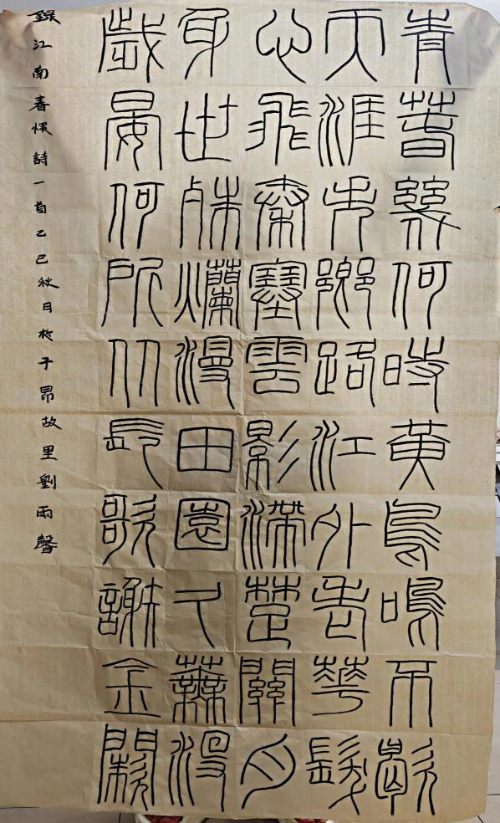 青春幾何時黃鳥鳴不歇
天涯失鄉路江外老華髮
心飛秦塞雲影滯楚關月
身世殊爛漫田園久蕪沒
歲晏何所从長歌謝金闕
錄江南春懷詩一首乙巳秋月於子昂故里劉雨馨